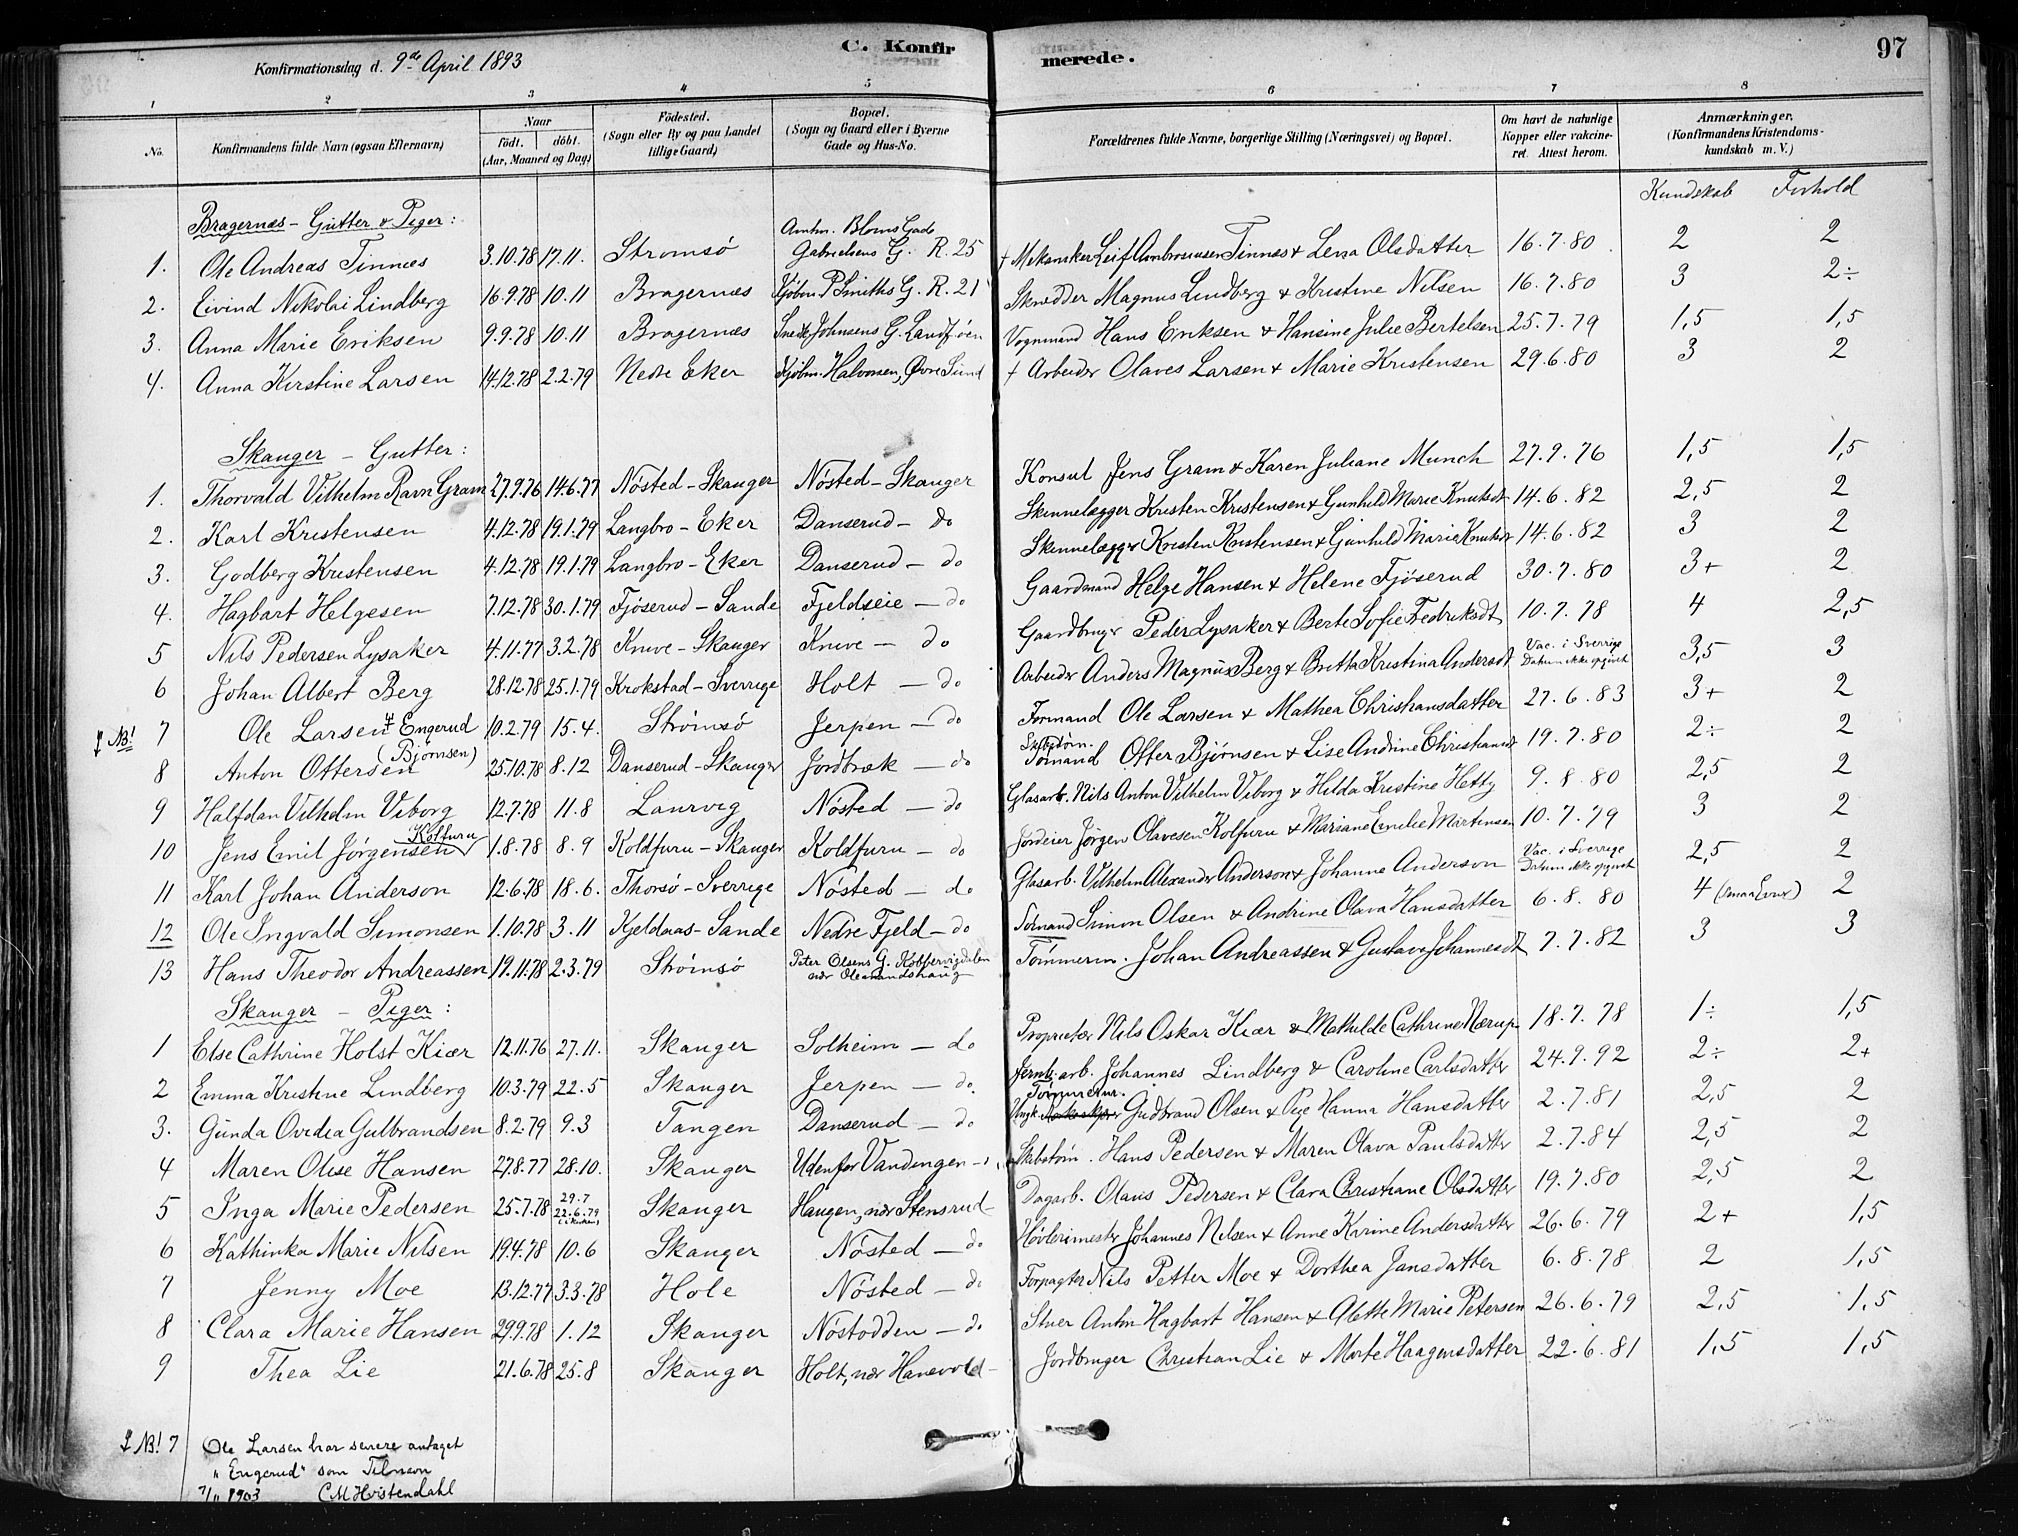 C. Konfir
merede.
97
Konfirmationsdag d. 9de April 1893
1 2 3 4 5 6 7 8
No.
Konfirmandens fulde Navn (ogsaa Efternavn)
Naar
født. døbt.
(Aar, Maaned og Dag)
Fødested.
(Sogn eller By og paa Landet
tillige Gaard)
Bopæl.
(Sogn og Gaard eller i Byerne
Gade og Hus-No.
Forældrenes fulde Navne, borgerlige Stilling (Næringsvei) og Bopæl.
Om havt de naturlige
Kopper eller vakcine-
ret. Attest herom.
Anmærkninger.
(Konfirmandens Kristendoms-
kundskab m. V.)
Kundskab Forhold
Bragernæs - Gutter & Piger:
1. Ole Andreas Tinnæs 3.10.78 17.11. Strømsø Amtm. Bloms Gade Gabrielsens G. R. 25 † Mekaniker Leif Ambrosiusen Tinnæs & Lena Olsdatter 16.7.80. 2 2
2. Eivind Nikolai Lindberg 16.9.78 10.11 Bragernæs Kjøbm. P. Smiths G. R. 21 Skrædder Magnus Lindberg & Kristine Nilsen 16.7.80 3 2÷
3. Anna Marie Eriksen 9.9.78 10.11 Bragernæs Snedk. Johnsens G. Landføen Vognmand Hans Eriksen & Hansine Julie Bertelsen 25.7.79 1,5 1,5
4. Anna Kirstine Larsen 14.12.78 2.2.79 Nedre Eker Kjøbm. Halvorsen, Øvre Sund † Arbeider Olaves Larsen & Marie Kristensen 29.6.80 3 2
Skanger - Gutter:
1. Thorvald Vilhelm Ravn Gram 27.9.76 14.6.77 Nøsted - Skanger Nøsted - Skanger Konsul Jens Gram & Karen Juliane Munch 27.9.76 1,5 1,5
2. Karl Kristensen 4.12.78 19.1.79 Langbro - Eker Danserud - do Skinnelægger Kristen Kristensen & Gunhild Marie Knutsdt 14.6.82 2,5 2
3. Godberg Kristensen 4.12.78 19.1.79 Langbro - Eker Danserud - do Skinnelægger Kristen Kristensen & Gunhild Marie Knutsdt 14.6.82 3 2
4. Hagbart Helgesen 7.12.78 30.1.79 Fjøserud - Sande Fjeldseie - do Gaardmand Helge Hansen & Helene Fjøserud 30.7.80 3+ 2
5 Nils Pedersen Lysaker 4.11.77 3.2.78 Knive - Skanger Knive - do Gaardbruger Peder Lysaker & Berte Sofie Fredriksdt 10.7.78 4 2,5
6 Johan Albert Berg 28.12.78 25.1.79 Krokstad - Sverrige Holt - do Arbeider Anders Magnus Berg & Britta Kristina Andersdt Vac. i Sverrige Datum ikke opgivet 3,5 3
NB! 7 Ole Larsen Engerud 10.2.79 15.4. Strømsø Jerpen - do Formand Ole Larsen & Mathea Christiansdatter 27.6.83 3+ 2
8 Anton Ottersen (Bjørnsen) 25.10.78 8.12 Danserud - Skanger Jordbræk - do Skibstøm. Tømand Otter Bjørnsen & Lise Andrine Christiansdt 19.7.80 2÷ 2
9 Halfdan Vilhelm Viborg 12.7.78 11.8 Laurvig Nøsted - do Glasarb. Nils Anton Vilhelm Viborg & Hilda Kristine Hetty 9.8.80 2,5 2
10 Jens Emil Jørgensen Kolfuru 1.8.78 8.9 Koldfuru - Skanger Koldfuru - do Jordeier Jørgen Olavesen Kolfuru & Mariane Emilie Martinsen 10.7.79 3 2
11 Karl Johan Anderson 12.6.78 18.6. Thorsø - Sverrige Nøsted - do Glasarb. Vilhelm Alexander Anderson & Johanne Anderson Vac. i Sverrige Datum ikke opgivet 2,5 2
12 Ole Ingvald Simonsen 1.10.78 3.11 Kjeldaas - Sande Nedre Fjeld - do Simon Olsen & Andrine Olava Hansdatter 6.8.80 4 (smaa Evner) 2
13 Hans Theodor Andreassen 19.11.78 2.3.79 Strømsø Peter Olsens G. Kobbervigdalen nær Olemandshaug Tømmerm. Johan Andreassen & Gustava Johannesdt 7.7.82 3 3
Skanger - Piger:
1 Else Cathrine Holst Kiær 12.11.76 27.11. Skanger Solheim - do Proprietær Nils Oskar Kiær & Mathilde Cathrine Nærup 18.7.78 1÷ 1,5
2 Emma Kristine Lindberg 10.3.79 22.5 Skanger Jerpen - do Jernb. arb. Johannes Lindberg & Caroline Carlsdatter 24.9.92 2÷ 2+
3. Gunda Ovedia Gulbrandsen 8.2.79 9.3 Tangen Danserud - do Ungk. Tømmerm. Gudbrand Olsen & Pige Hanna Hansdatter 2.7.81 2,5 2
4 Maren Olise Hansen 27.8.77 28.10. Skanger Udenfor Vandengen - Skibstøm. Hans Pedersen & Maren Olava Paulsdatter 2.7.84 2,5 2
5 Inga Marie Pedersen 25.7.78 29.7 22.6.79 (i Kirken) Skanger Haugen, nær Stensrud - Dagarb. Olaus Pedersen & Clara Christiane Olsdatter 19.7.80 2,5 2
6 Kathinka Marie Nilsen 19.4.78 10.6 Skanger Nøsted - do Høvlerimester Johannes Nilsen & Anne Karine Andersdatter 26.6.79 2+ 1,5
7 Jenny Moe 13.12.77 3.3.78 Hole Nøsted - do Forpagter Nils Petter Moe & Dorthea Jansdatter 6.8.78 2 1,5
8 Clara Marie Hansen 29.9.78 1.12 Skanger Nøstodden - do Stuer Anton Hagbart Hansen & Alette Marie Petersen 26.6.79 2,5 1,5
9 Thea Lie 21.6.78 25.8 Skanger Holt, nær Hanevold - Jordbruger Christian Lie & Marte Haagensdatter 22.6.81 1,5 1,5
NB! 7 Ole Larsen har senere antaget
"Engerud" som Tilnavn
7/11 1903 CM Hvistendahl